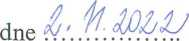 dne 2. 11. 2022